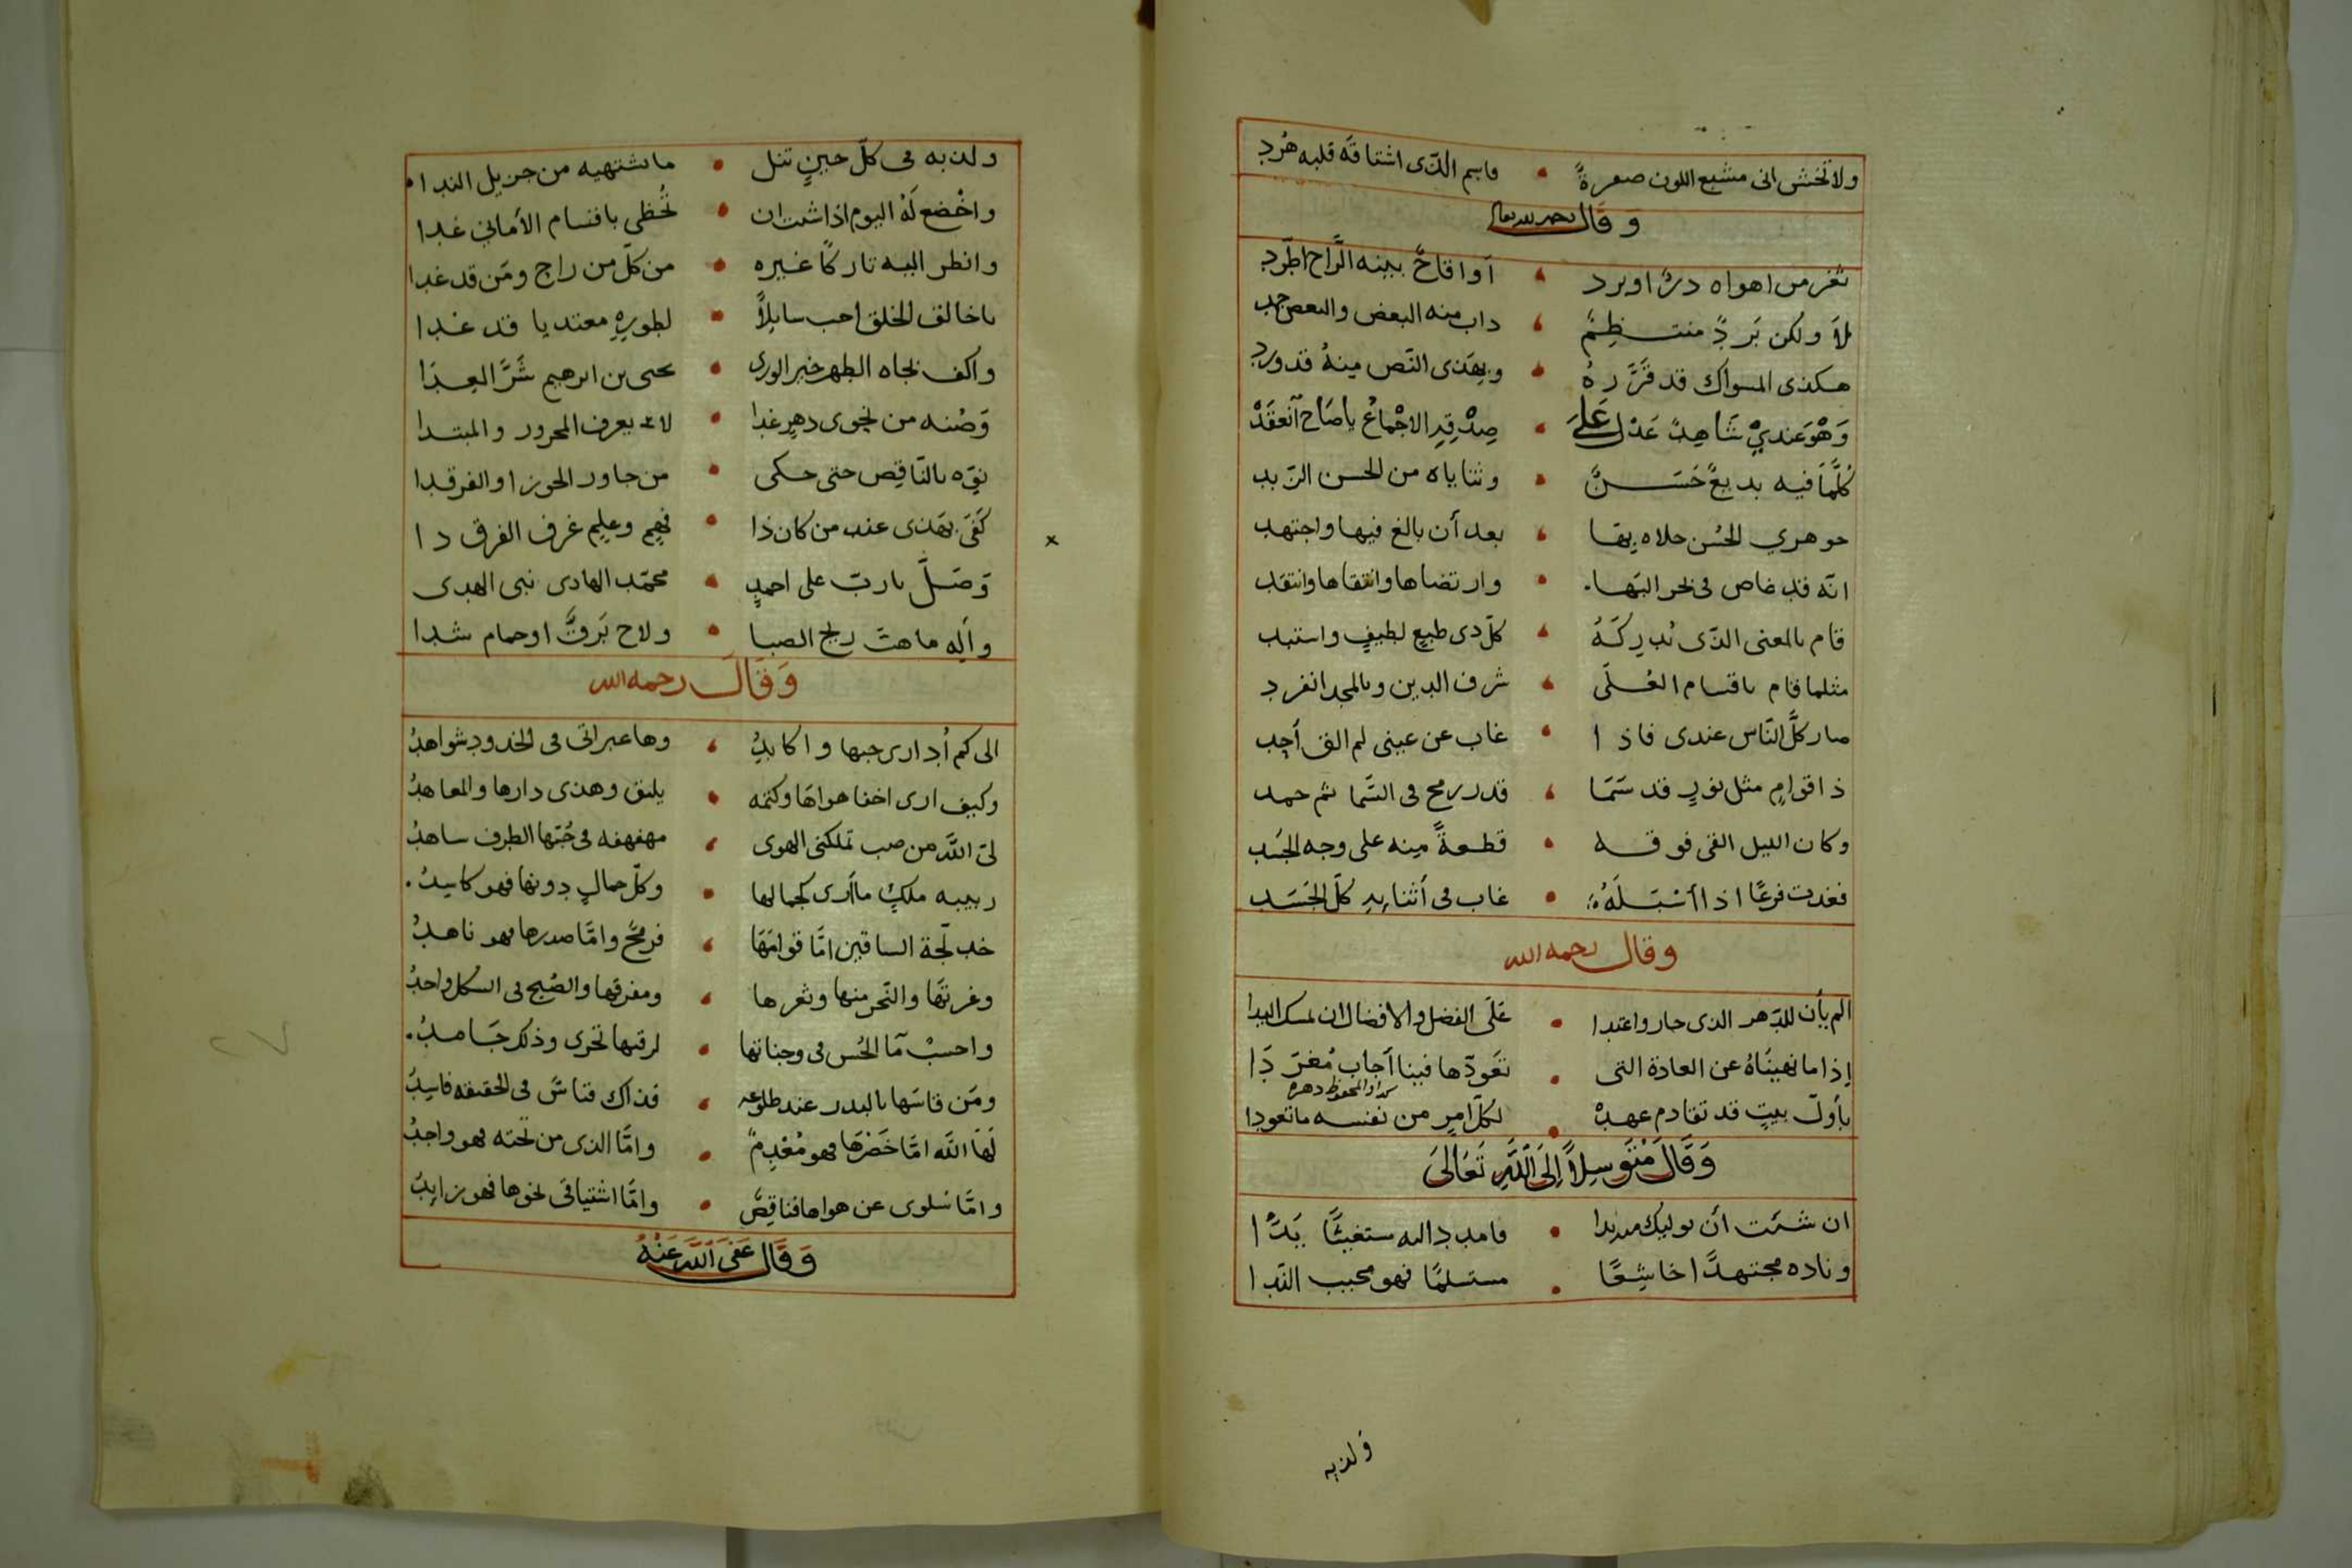 ولا تخشى انى مشبع اللون صفرةً • فاسم الذى اشتاقه قلبه هُرد
وقال رحمه الله تعالى
ثغر من اهواه درٌ او برد • أو اقاحٌ بينه الرَّاح اطّرد
بلاَ ولكن بَردٌ منتظِمٌ • ذاب منه البعض والبعض جمد
هكذى المسواك قد قَرَّره • وبهذى النّص مِنهُ قد ورد
وَهْوَ عنديْ شَاهِدٌ عَدْل عَلَى • صِدْقِهِ الاجْماعُ يا صَاحِ آنْعقَدْ
كُلَّمَا فيه بديعٌ حَسَنٌ • وثناياه من الحسن الزّبد
جوهري الحُسن حلاه بها • بعد أن بالغ فيها واجتهد
انّه قد غاص فى بحر البَها • وارتضاها وانتقاها وانتقد
قام بالمعنى الذّى تُدرِكهُ • كلّ ذى طبعٍ لطيفٍ واستبد
مثلما قام باقسام العُلَى • شرف الدين وبالمجد انفرد
صار كلّ النّاس عندى فاذا • غاب عن عينى لم الق أحد
ذا قوامٍ مثل نورٍ قد سَمَا • قدر رمح فى السَّما ثم جمد
وكان الليل القى فوقه • قطعةً مِنه على وجه الجَسَد
فغدت فرعًا اذا أسْبَلَهُ • غاب فى أثنايهِ كلّ الجَسَد
وقال رحمه الله
الم يأن للدّهر الذى جار واعتدا • عَلَى الفضل والافضال ان يمسك اليدا
إذا ما نهينَاهُ عن العادة التى • تعَودّها فينا أجاب مُغرّدَا
بأولّ بيتٍ قد تقادم عهدهُ • لكلّ امرٍ من نفسه ما تعودا
وَقَالَ مُتَوَسِلاً إِلَى اللَّهِ تَعَالَى
ان شئت أن يوليك مددا • فامدد اليه مستغيثًا يَدًا
وناده مجتهدًا خاشِعًا • مستسلمًا فهو مجيب النّدا
ولذ به
ولذ به فى كلّ حينٍ تنل • ما تشتهيه من جزيل الندا
واخْضع لَهُ اليوم اذا شئت ان • تُحظى باقسام الأماني غدا
وانظر اليه تاركًا غيره • من كلّ من راح ومَن قد غدا
يا خالق الخلق اجب سايلاً • لطورِهِ معتديا قد غدا
واكف بجاه الطهر خير الورى • يحيى بن ابرهيم شَرَّ العِدَا
وَصُنه من نجوى دهرٍ غدا • لا يعرف المجرور والمبتدا
نوّه بالنّاقِص حتى حكى • من جاور الجوزا والفرقدا
كَفَى بهَذى عند من كان ذا • فهمٍ وعليمٍ غرف الفرق دا
وَصَلِّ يا ربّ على احمدٍ • محمّد الهادى نبى الهدى
وآلِه ما هبّ ريح الصبا • ولاح بَرقٌ او حمام شدا
وَقَالَ رحمه الله
الى كم أُدارى حبها واكابِدُ • وها عبراتى فى الخدود شواهدُ
وكيف ارى اخفا هواهَا وكتمه • يليق وهذى دارها والمعاهدُ
لىَ اللَّه من صب تملكنى الهوى • مهفهفه فى حُبّها الطرف ساهدُ
ربيبه ملكٍ ما أرى كجمالها • وكلّ جمالٍ دونها فهو كاسِدُ
خدلّجة الساقين امَّا قوامَهَا • فرمحٌ وامَّا صدرها فهو ناهدُ
وغرتهَا والنّحر منها وثغرها • ومفرقها والصُبح فى الشكل واحدُ
واحسبُ مآ الحُسن فى وجناتها • لرقتها تجرى وذلك جَامدُ
ومَن قاسَها بالبدر عند طلوعه • فذاك قياسٌ فى الحقيقه فاسِدُ
لَهَا اللَّه امَّا خَصْرَهَا فهو مُعْدِمٌ • وامَّا الذى من تحته فهو واجدُ
وامَّا سُلوى عن هواها فناقِصٌ • وامَّا اشتياقى نحوها فهو زايدُ
وَقَالَ عَفَى اَللَّه عَنْهُ